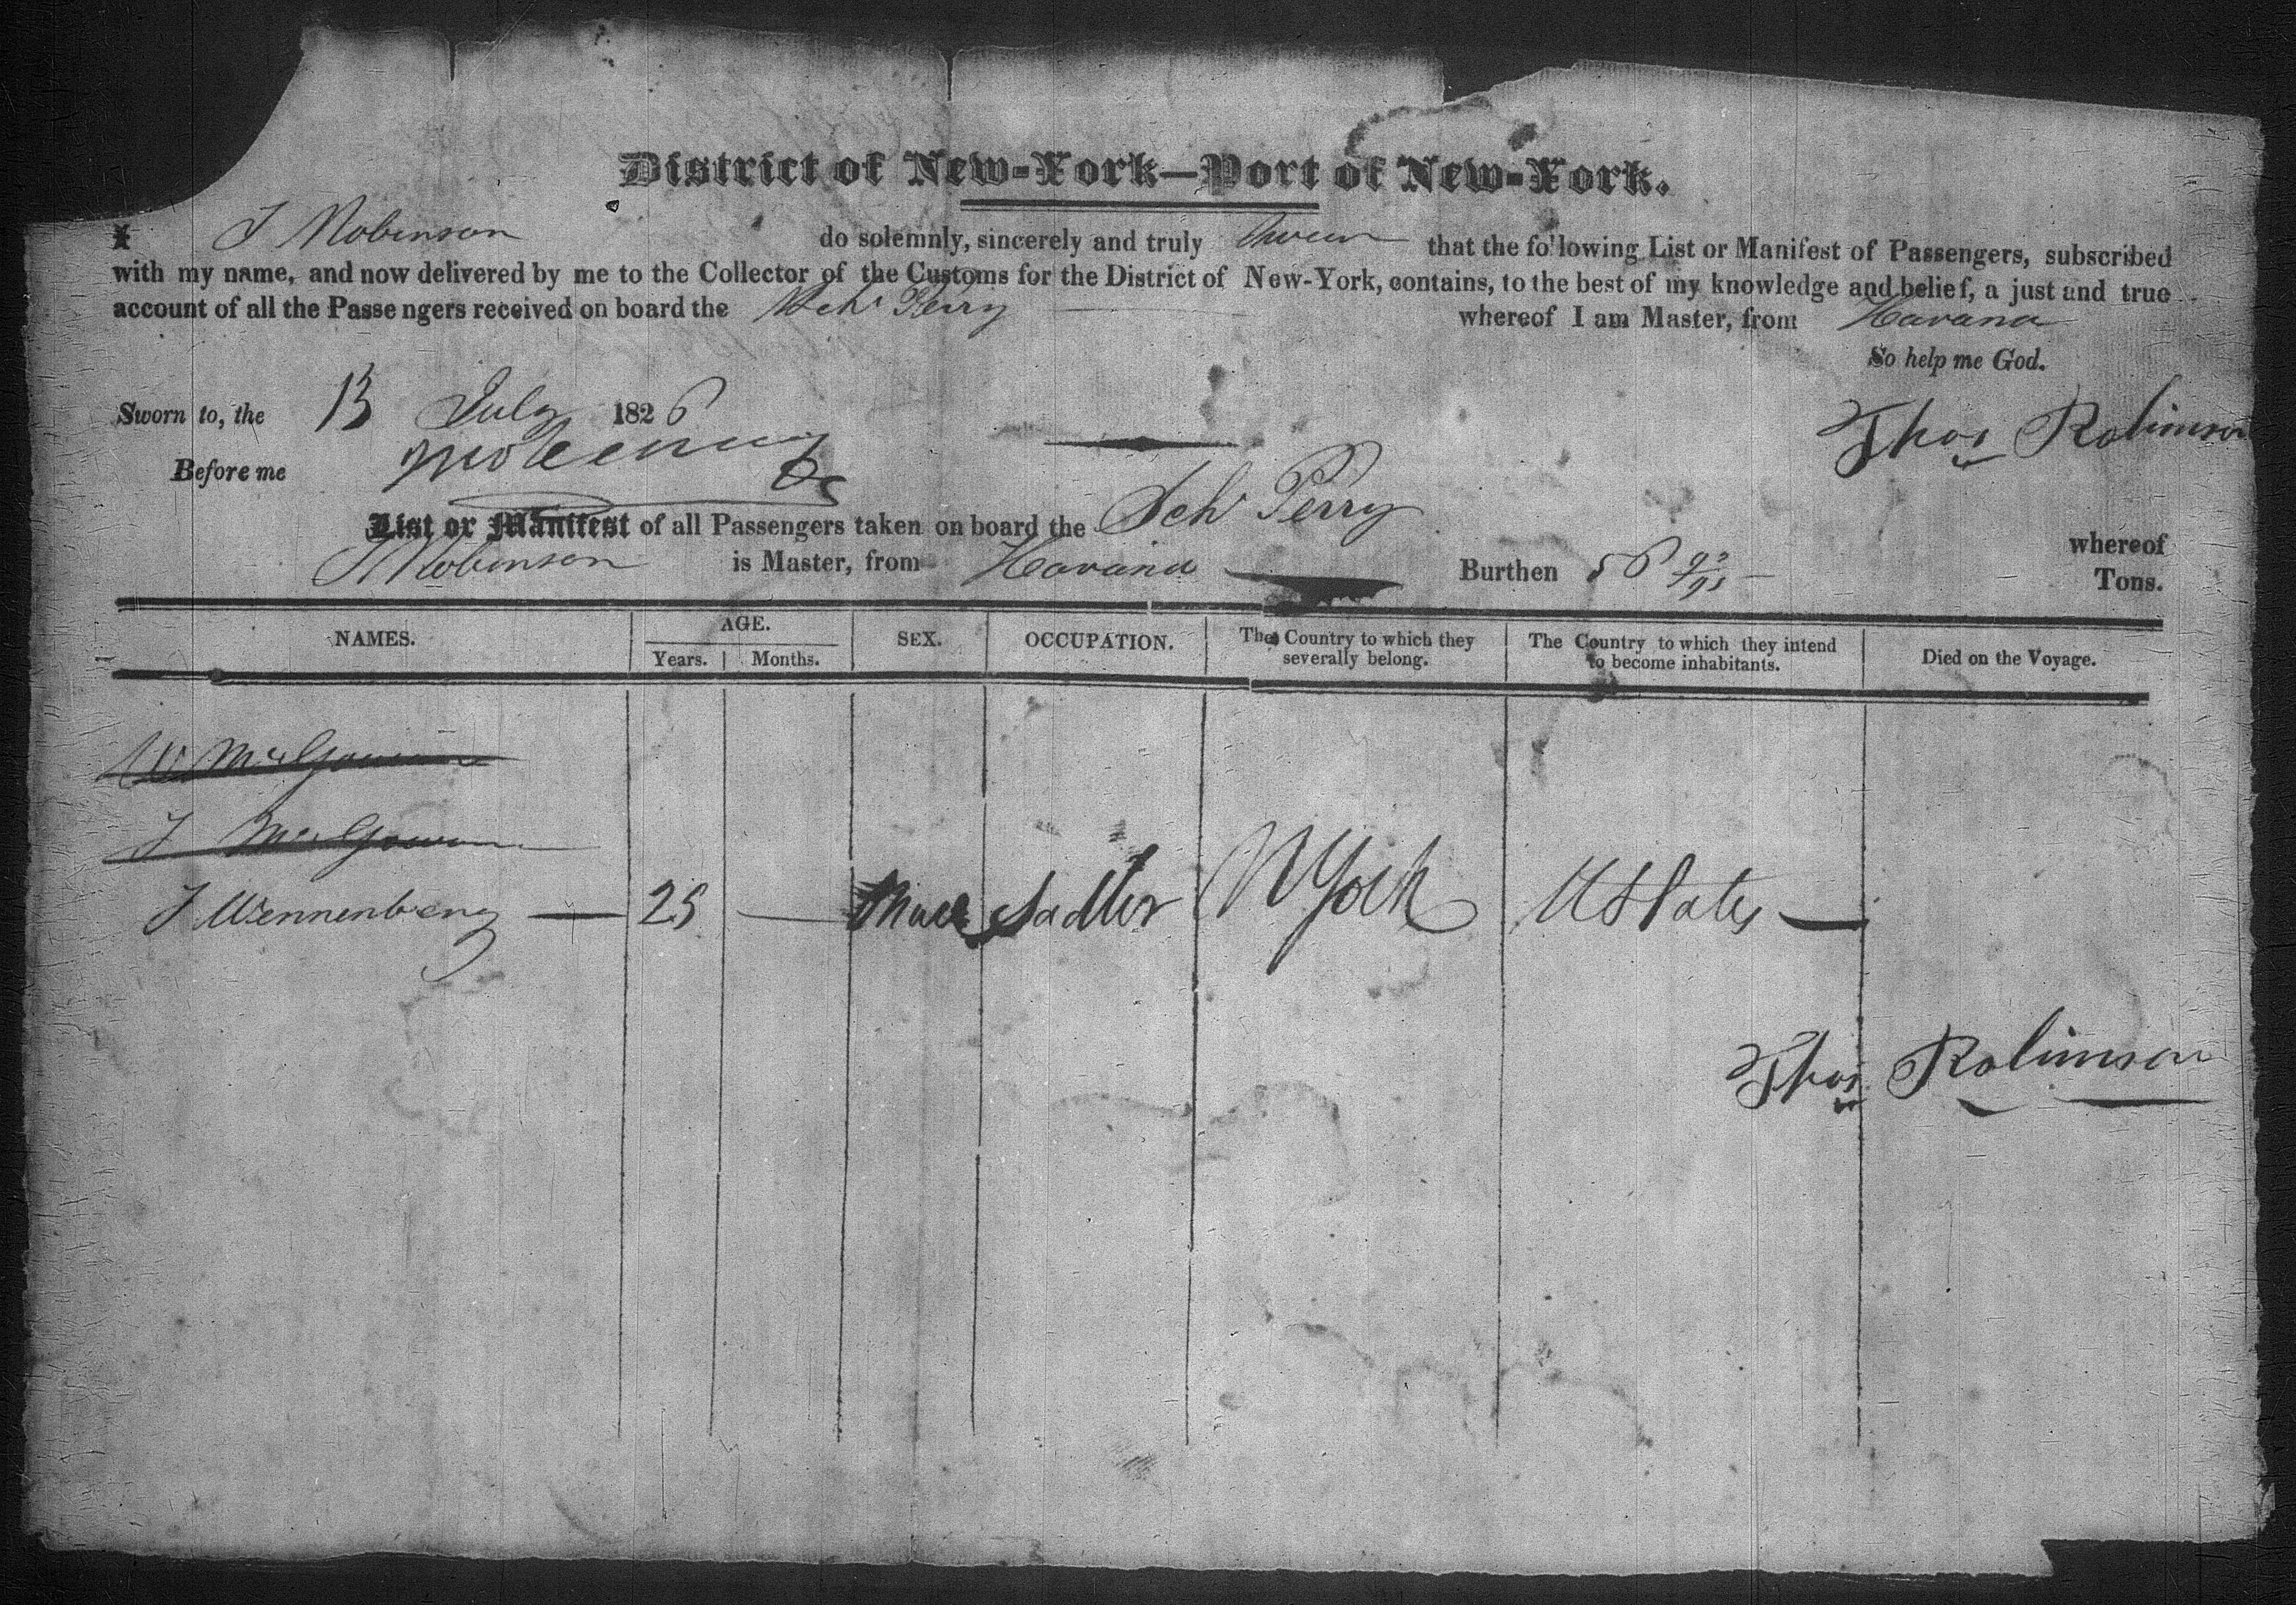 District of New-York—Port of New-York.
I T Robinson do solemnly, sincerely and truly Swear that the following List or Manifest of Passengers, subscribed
with my name, and now delivered by me to the Collector of the Customs for the District of New-York, contains, to the best of my knowledge and belief, a just and true
account of all the Passengers received on board the Schr Perry whereof I am Master, from Havana
So help me God.
Sworn to, the 13 July 1826
Thos Robinson
Before me
List or Manifest of all Passengers taken on board the Schr Perry whereof
T Robinson is Master, from Havana Burthen 56 92/95 Tons.
NAMES. AGE. Years. Months. SEX. OCCUPATION. The Country to which they severally belong. The Country to which they intend to become inhabitants. Died on the Voyage.
W McGowan
J McGowan
J Wennenberg — 25 — Male Sadler N York U States —
Thos Robinson